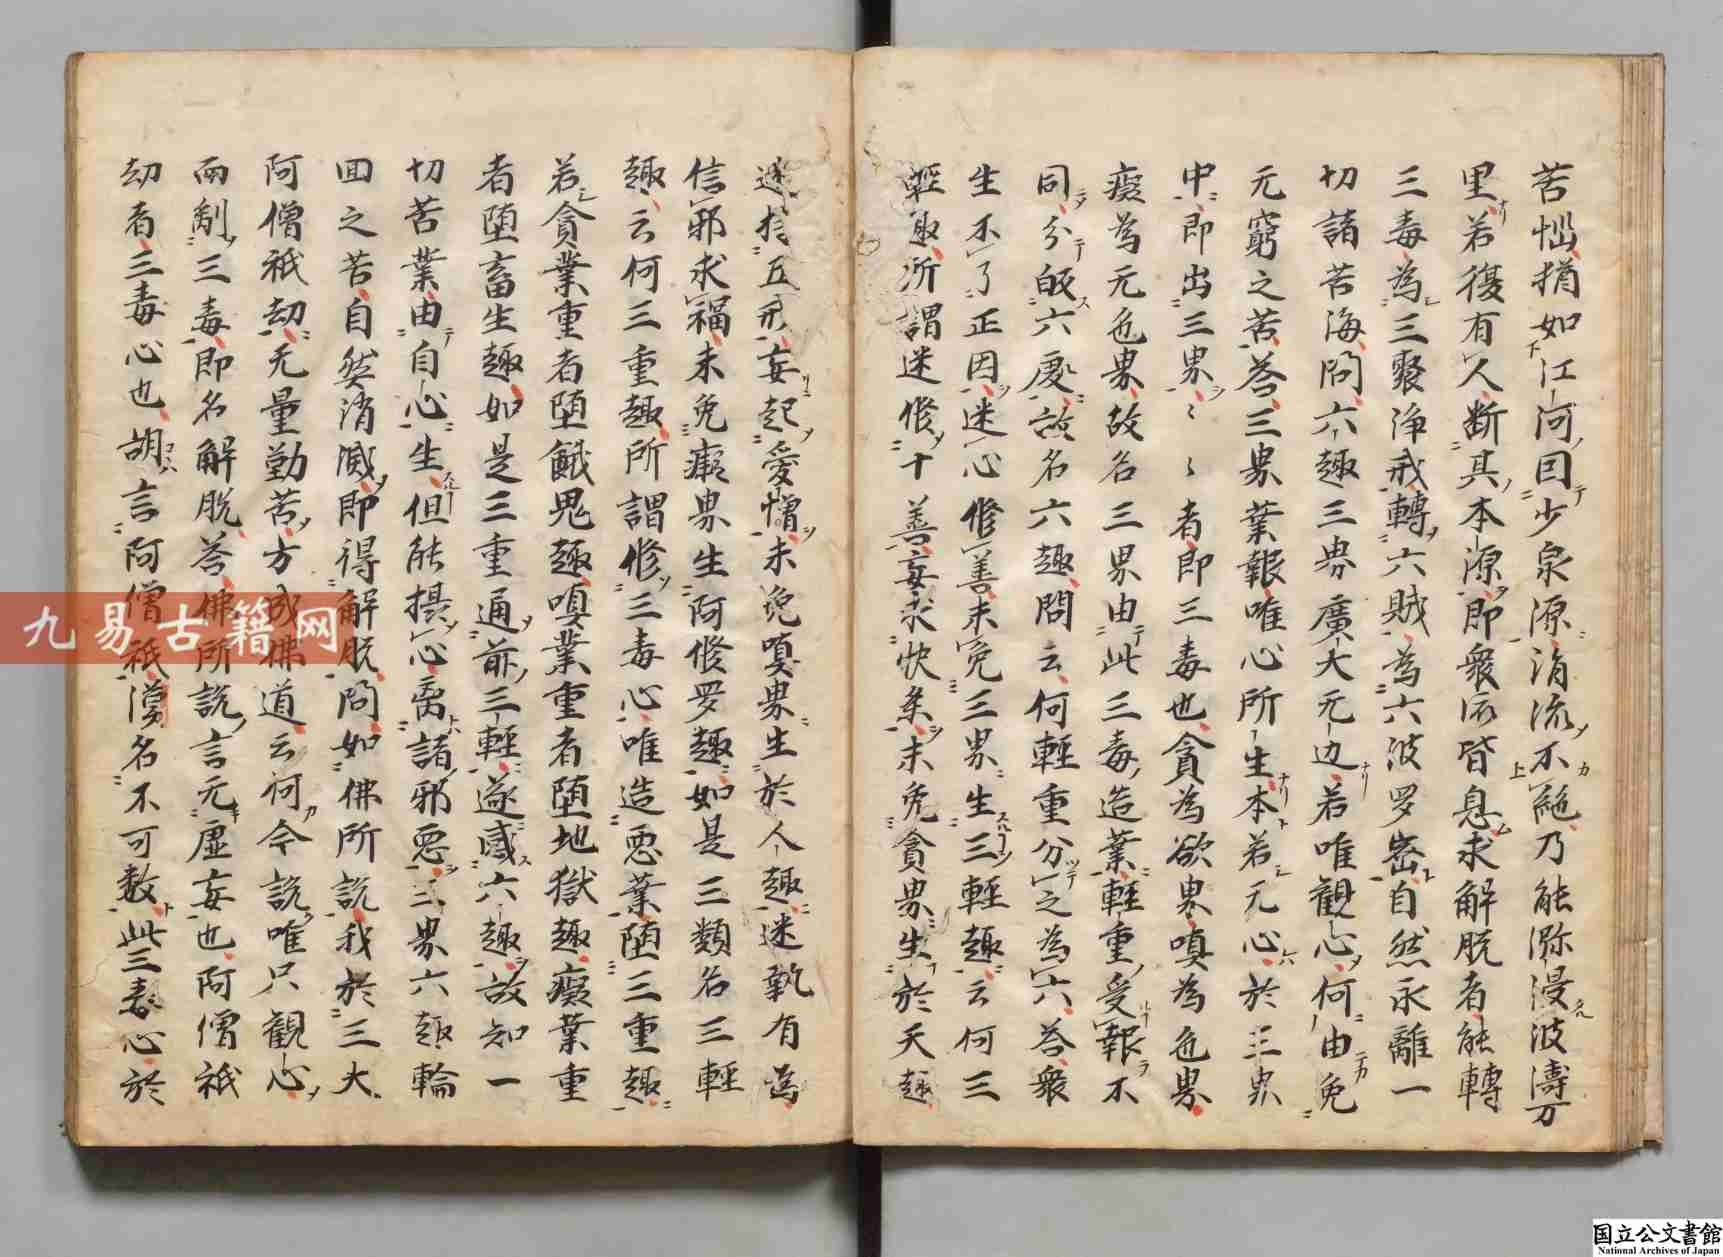 苦惱猶如江河因少泉源涓流不絶乃能弥漫波濤万
里若復有人断其本源即衆流皆息求解脱者能轉
三毒為三聚浄戒轉六賊為六波罗密自然永離一
切諸苦海問六趣三界廣大无边若唯観心何由免
元窮之苦荅三界業報唯心所生本若无心於三界
中即出三界〻〻者即三毒也貪為欲界嗔為色界
癡為无色界故名三界由此三毒造業輕重受報不
同分皈六処故名六趣問云何輕重分之為六荅衆
生不了正因迷心修善未免三界生三輕趣云何三
輕趣所謂迷修十善妄求快楽未免貪界生於天趣
迷持五戒妄起愛憎未免嗔界生於人趣迷執有為
信邪求福未免癡界生阿修罗趣如是三類名三輕
趣云何三重趣所謂修三毒心唯造悪業堕三重趣
若貪業重者堕餓鬼趣嗔業重者堕地獄趣癡業重
者堕畜生趣如是三重通前三輕遂感六趣故知一
切苦業由自心生但能摂心离諸邪悪三界六趣輪
回之苦自然消滅即得解脱問如佛所説我於三大
阿僧祇劫无量勤苦方成佛道云何今説唯只観心
而制三毒即名解脱荅佛所説言无虚妄也阿僧祇
劫者三毒心也胡言阿僧祇漢名不可数此三毒心於
九易古籍网
国立公文書館
National Archives of Japan